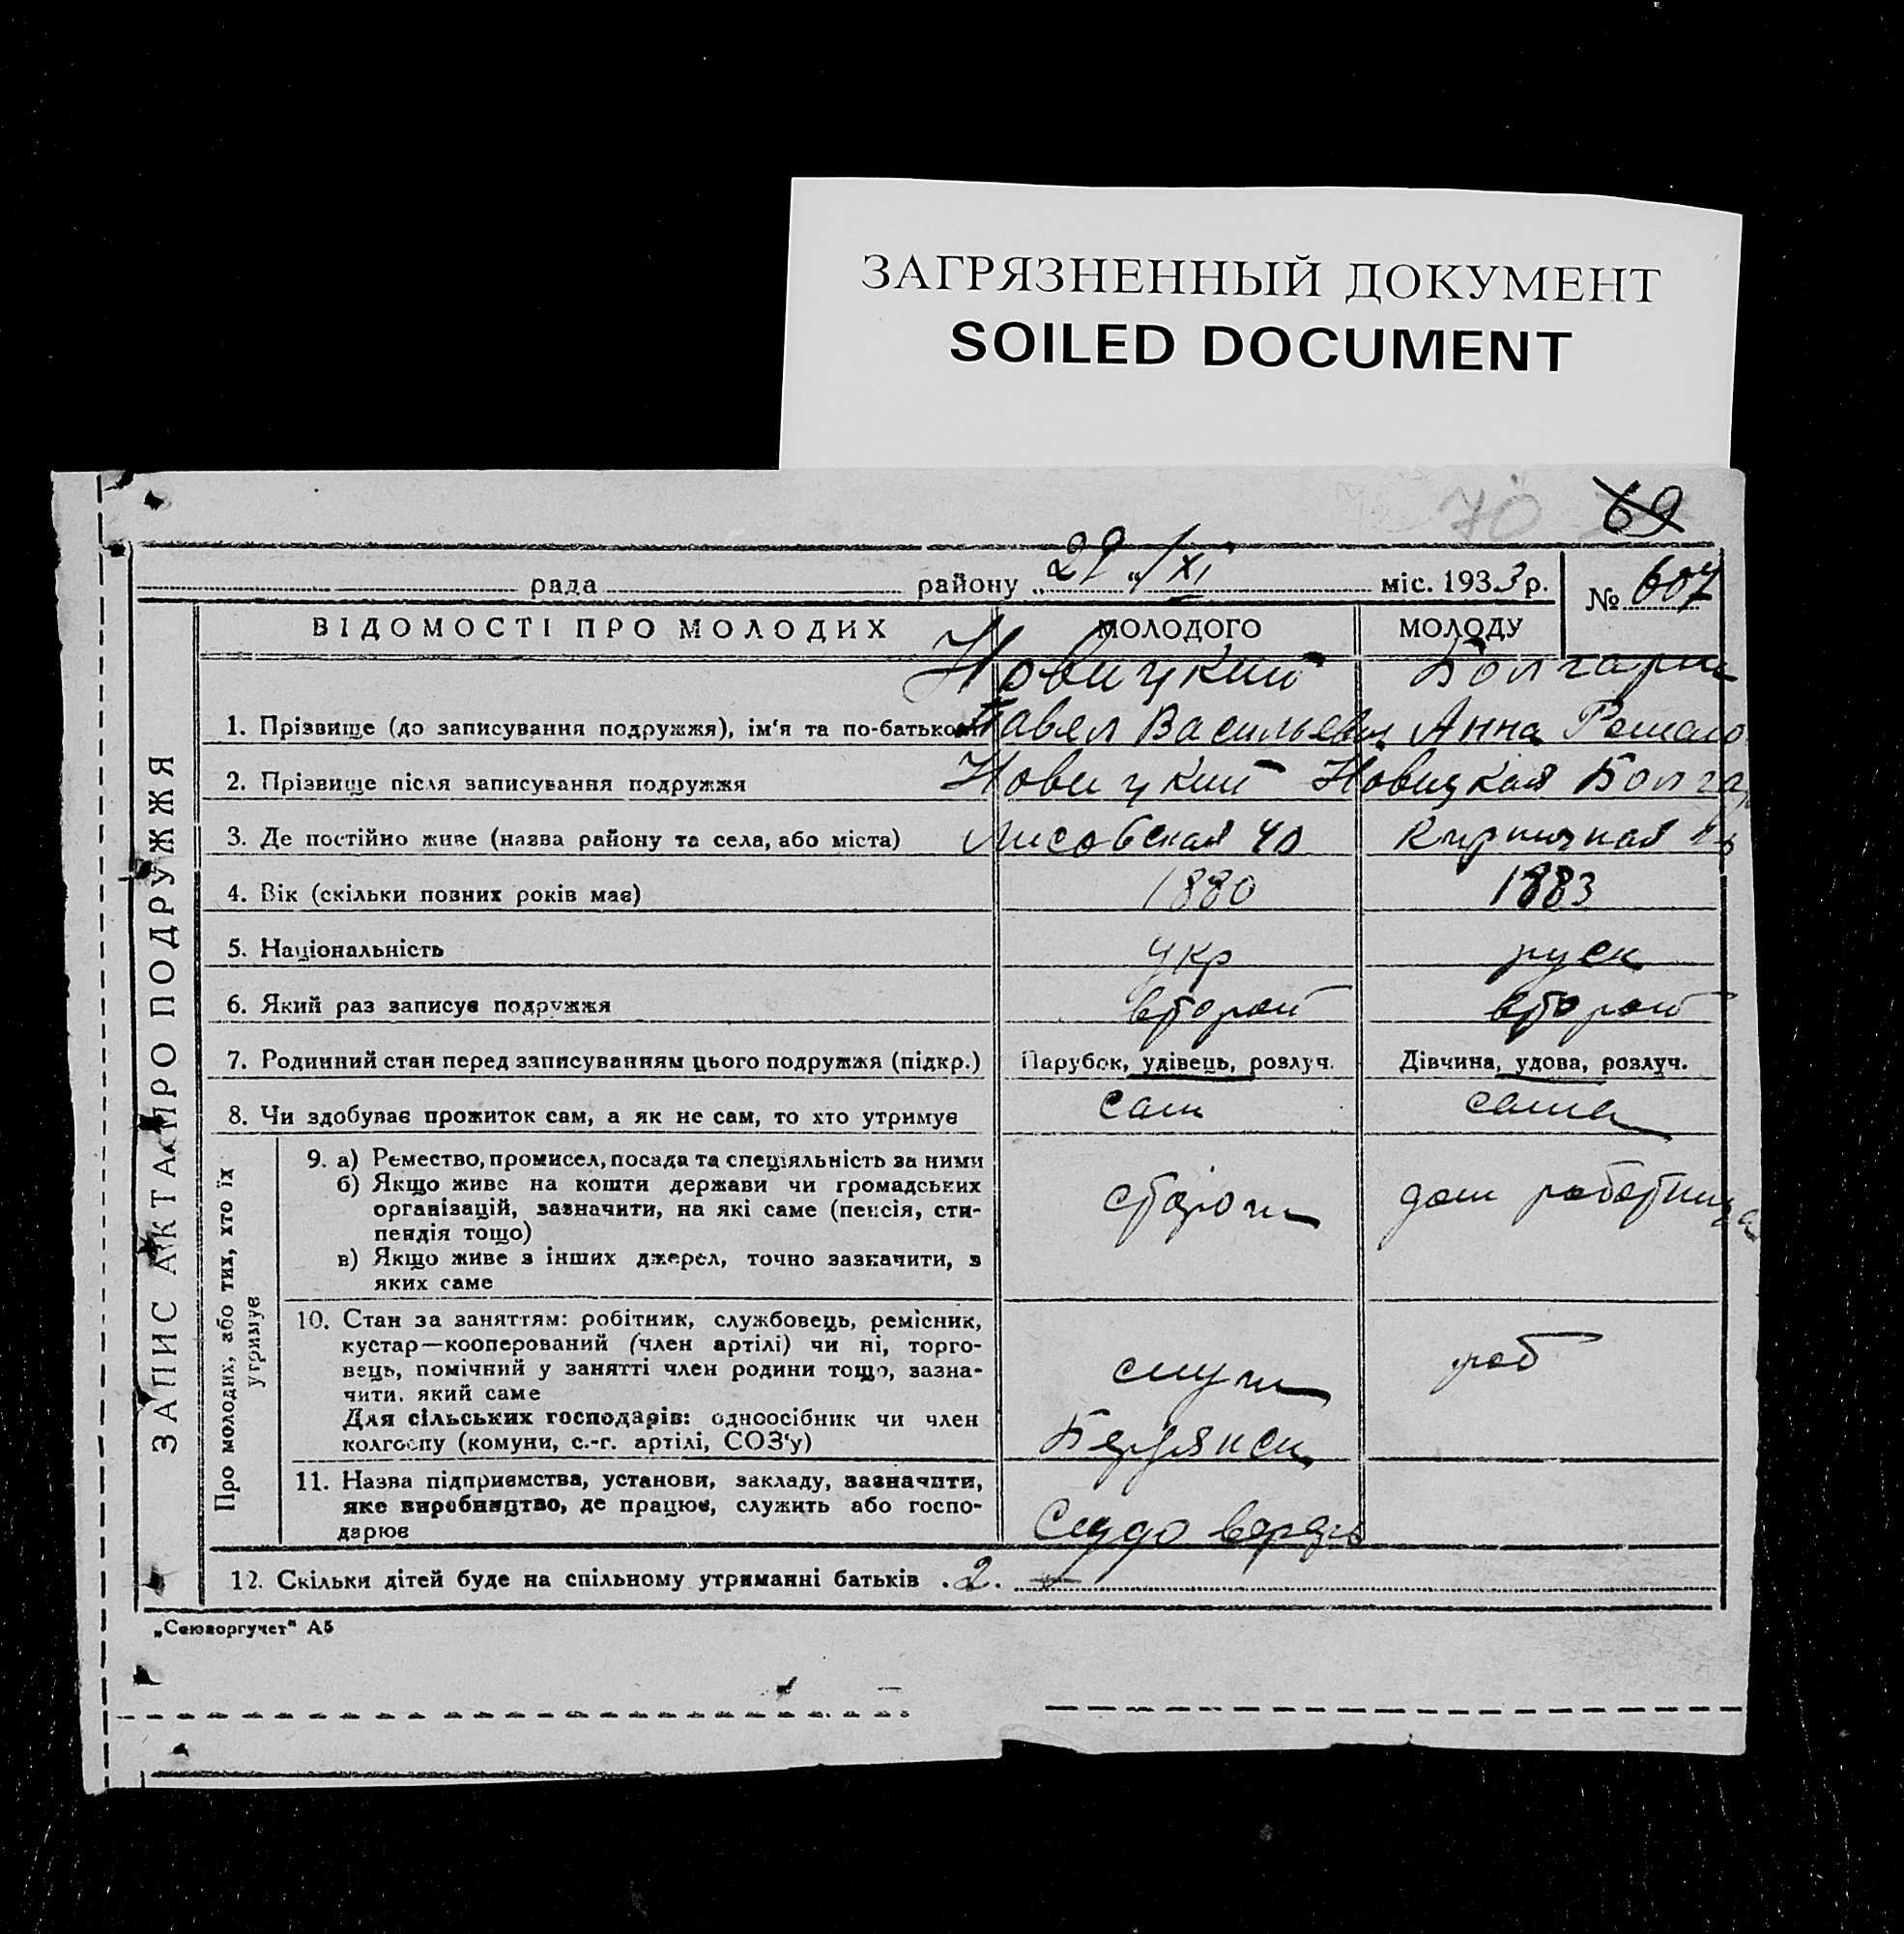 ЗАГРЯЗНЕННЫЙ ДОКУМЕНТ
SOILED DOCUMENT
70 69
рада района 29 "/XI міс. 1933 р. № 607
ЗАПИС АКТА ПРО ПОДРУЖЖЯ
ВІДОМОСТІ ПРО МОЛОДИХ МОЛОДОГО МОЛОДУ
Новицкий
1. Прізвище (до записування подружжя), ім'я та по-батькові Павел Васильевич Анна
2. Прізвище після записування подружжя Новицкий Новицкая Болгар
3. Де постійно живе (назва району та села, або міста) Лисовская 40 Кирпичная
4. Вік (скільки повних років має) 1880 1883
5. Національність укр руск
6. Який раз записує подружжя второй второй
7. Родинний стан перед записуванням цього подружжя (підкр.) Парубок, удівець, розлуч. Дівчина, удова, розлуч.
8. Чи здобуває прожиток сам, а як не сам, то хто утримує сам сама
Про молодих, або тих, хто їх
утримує
9. а) Ремество, промисел, посада та спеціяльність за ними
б) Якщо живе на кошти держави чи громадських
організацій, зазначити, на які саме (пенсія, сти-
пендія тощо)
в) Якщо живе з інших джерел, точно зазначити, з
яких саме
сторож дом работница
10. Стан за заняттям: робітник, службовець, ремісник,
кустар—кооперований (член артілі) чи ні, торго-
вець, помічний у занятті член родини тощо, зазна-
чити, який саме
Для сільських господарів: одноосібник чи член
колгоспу (комуни, с.-г. артілі, СОЗ'у)
служ раб
11. Назва підприємства, установи, закладу, зазначити,
яке виробництво, де працює, служить або госпо-
дарює
12. Скільки дітей буде на спільному утриманні батьків . 2.
„Союзоргучет" А5